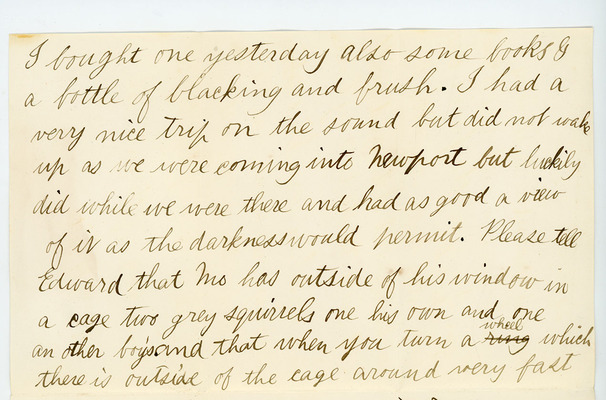 I bought one yesterday also some books &
a bottle of blacking and brush. I had a
very nice trip on the sound but did not wake
up as we were coming into Newport but luckily
did while we were there and had as good a view
of it as the darkness would permit. Please tell
Edward that Mo has outside of his window in
a cage two grey squirrels one his own and one
an other boys and that when you turn a ring wheel which
there is outside of the cage around very fast